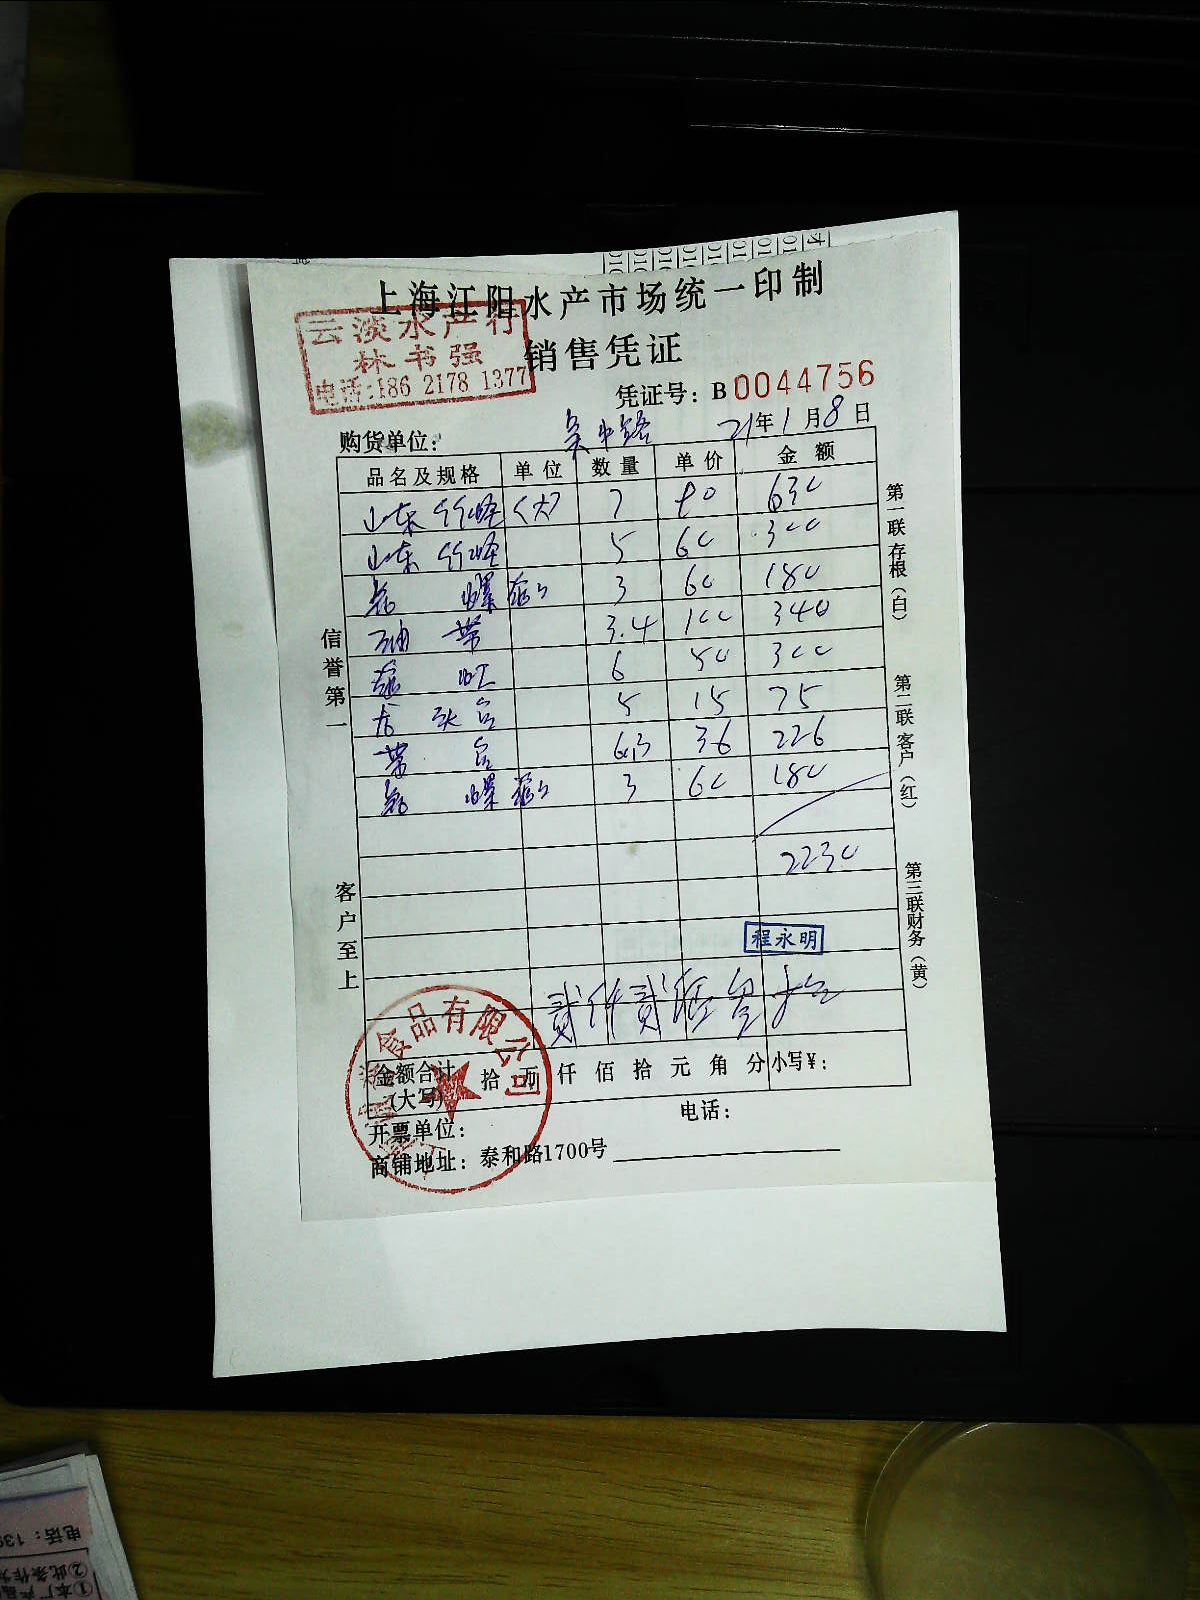 上海江阳水产市场统一印制
云淡水产行
林书强
电话:186 2178 1377
销售凭证
凭证号: B 0044756
购货单位: 吴中路 21年1月8日
品名及规格 单位 数量 单价 金额
山东竹蛏 (大) 7 90 630
山东竹蛏 5 60 300
螺 3 60 180
油带 3.4 100 340
6 50 300
5 15 75
带 6.3 36 226
螺 3 60 180
2230
程永明
信誉第一
客户至上
第一联存根(白)
第二联客户(红)
第三联财务(黄)
食品有限公司
金额合计(大写) 拾 万 仟 佰 拾 元 角 分 小写¥:
开票单位: 电话:
商铺地址: 泰和路1700号